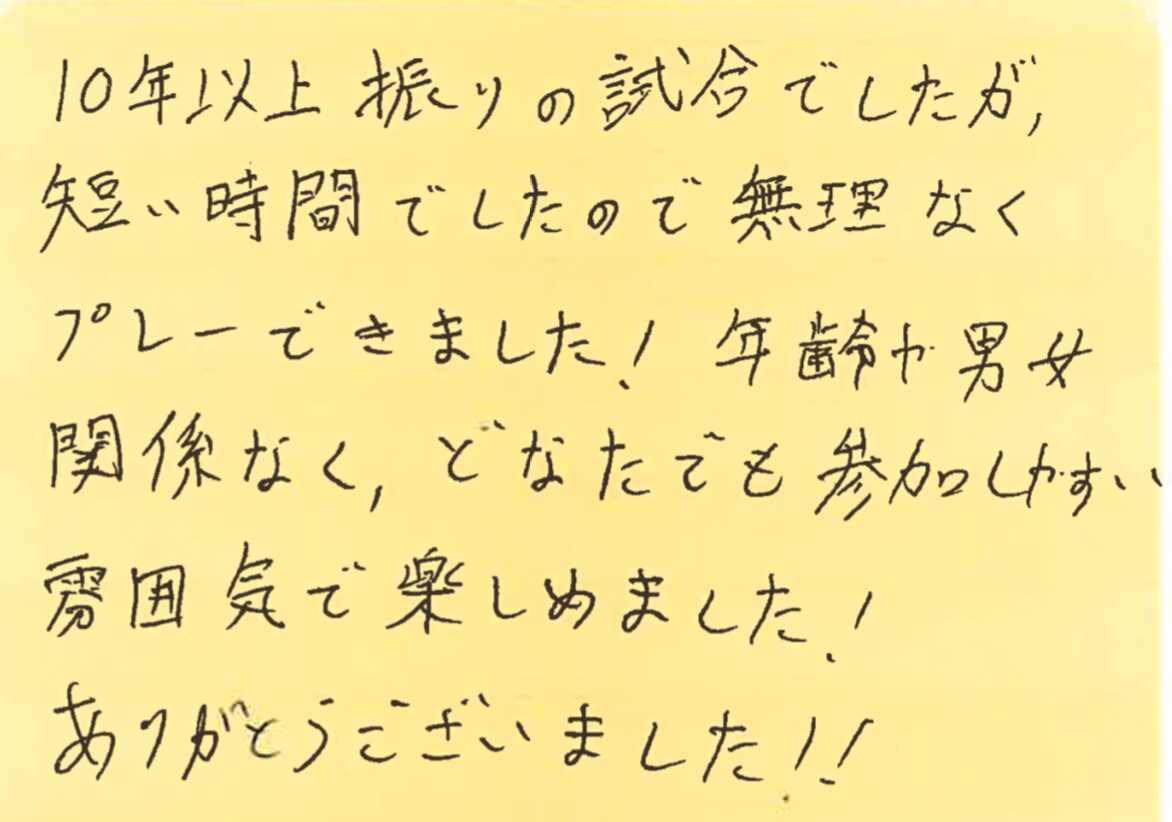 10年以上振りの試合でしたが,
短い時間でしたので無理なく
プレーできました! 年齢や男女
関係なく, どなたでも参加しやすい
雰囲気で楽しめました!
ありがとうございました!!